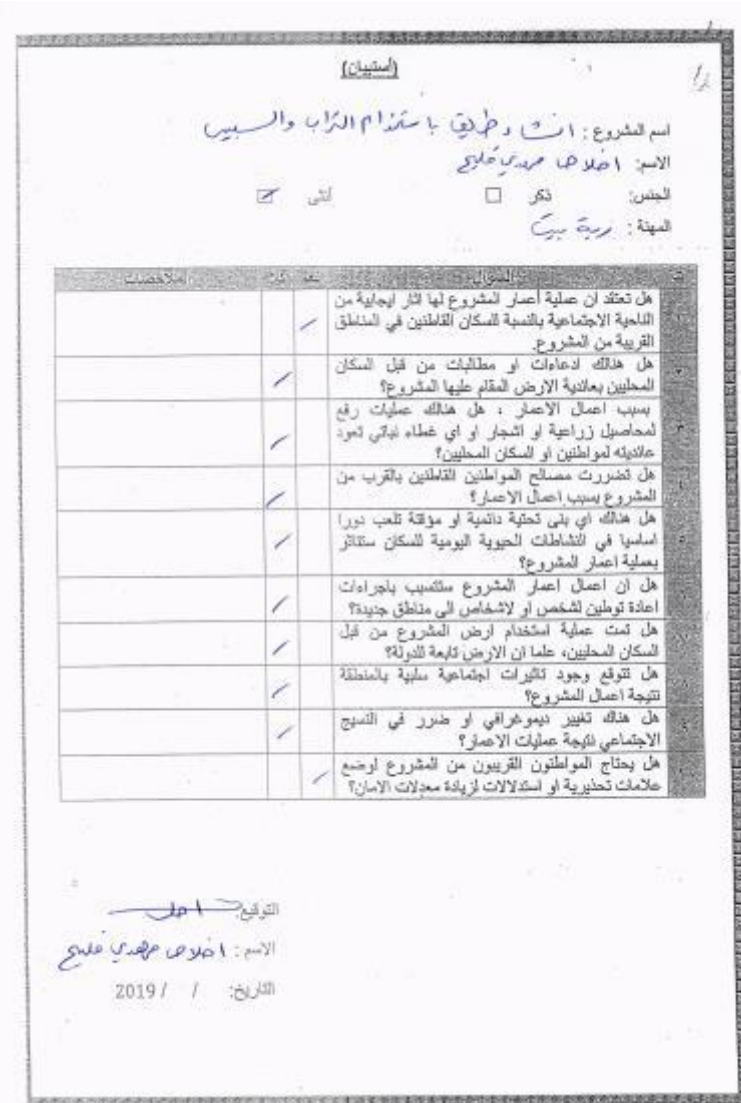 (أستبيان)
اسم المشروع : انشاء طريق باستخدام التراب والسبيس
الاسم: اخلاص مهدي فليح
الجنس: ذكر ☐ أنثى ☑
المهنة : ربة بيت
ت السؤال نعم كلا الملاحضات
هل تعتقد ان عملية أعمار المشروع لها اثار ايجابية من
الناحية الاجتماعية بالنسبة للسكان القاطنين في المناطق
القريبة من المشروع.
هل هنالك ادعاءات او مطالبات من قبل السكان
المحليين بعائدية الارض المقام عليها المشروع؟
بسبب اعمال الاعمار ، هل هنالك عمليات رفع
لمحاصيل زراعية او اشجار او اي غطاء نباتي تعود
عائديته لمواطنين او السكان المحليين؟
هل تضررت مصالح المواطنين القاطنين بالقرب من
المشروع بسبب اعمال الاعمار؟
هل هنالك اي بنى تحتية دائمية او مؤقتة تلعب دورا
اساسيا في النشاطات الحيوية اليومية للسكان ستتاثر
بعملية اعمار المشروع؟
هل ان اعمال اعمار المشروع ستتسبب باجراءات
اعادة توطين لشخص او لاشخاص الى مناطق جديدة؟
هل تمت عملية استخدام ارض المشروع من قبل
السكان المحليين، علما ان الارض تابعة للدولة؟
هل تتوقع وجود تاثيرات اجتماعية سلبية بالمنطقة
نتيجة اعمال المشروع؟
هل هناك تغيير ديموغرافي او ضرر في النسيج
الاجتماعي نتيجة عمليات الاعمار؟
هل يحتاج المواطنون القريبون من المشروع لوضع
علامات تحذيرية او استدلالات لزيادة معدلات الامان؟
التوقيع:
الاسم : اخلاص مهدي فليح
التاريخ: / / 2019